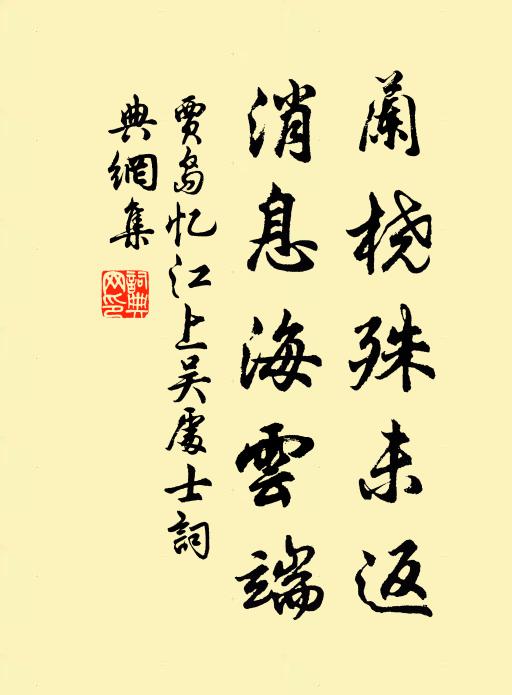 蘭桡殊未返
消息海雲端
賈島忆江上吴處士詞
典網集
詞典
网印